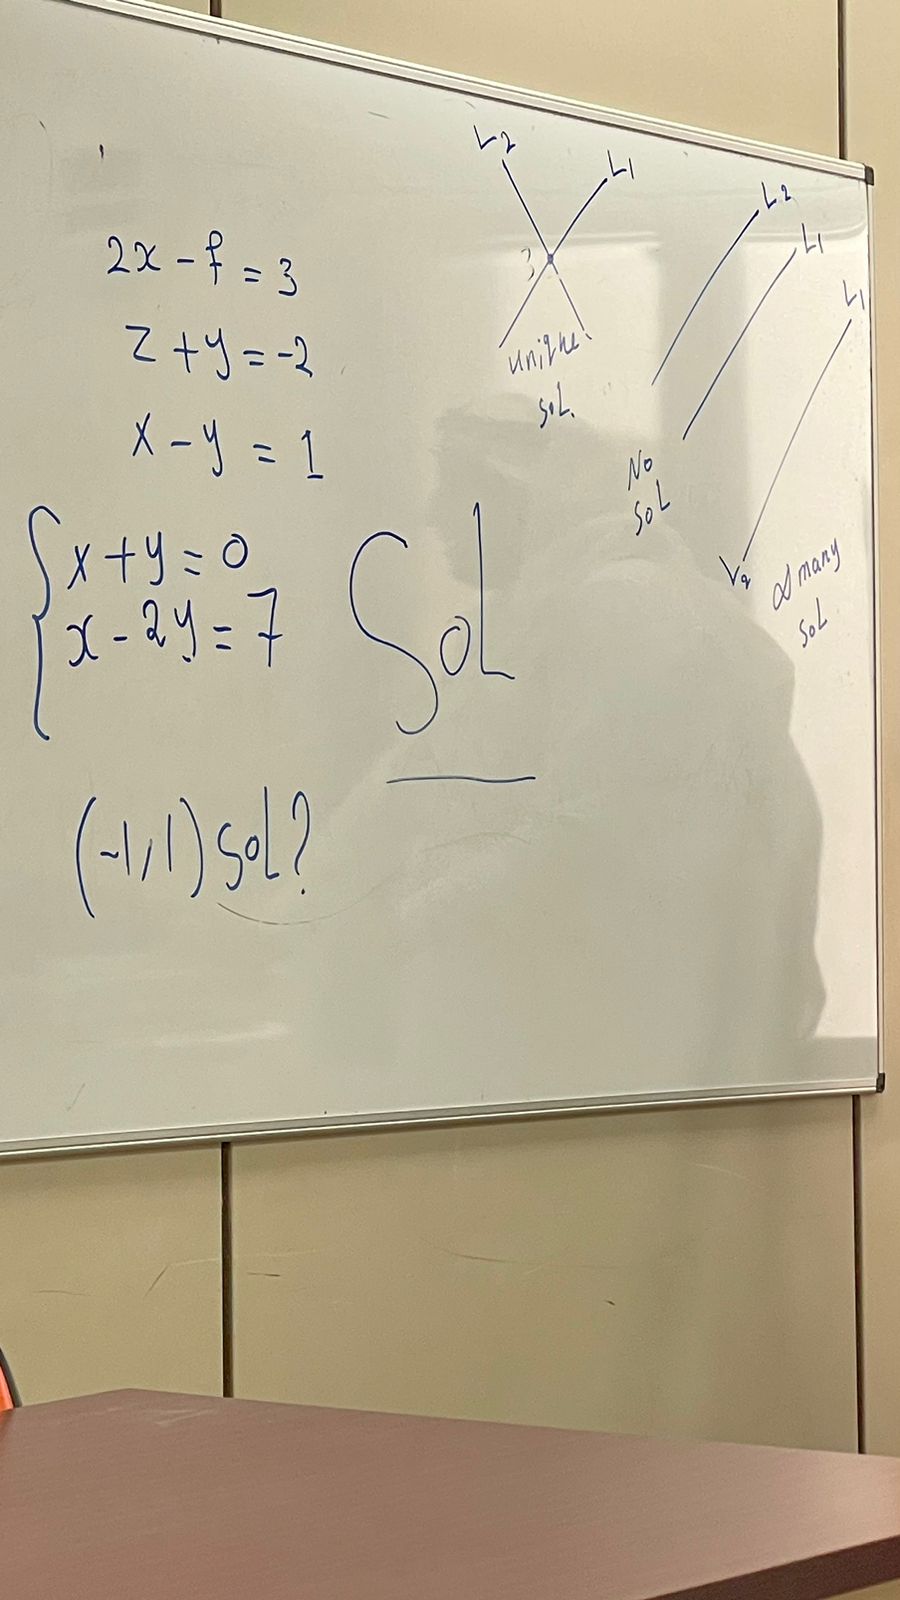 2x - f = 3
z + y = -2
x - y = 1
x + y = 0
x - 2y = 7
(-1,1) sol?
Sol
L2
L1
unique
sol.
L2
L1
No
Sol
L1
L2
∞ many
sol